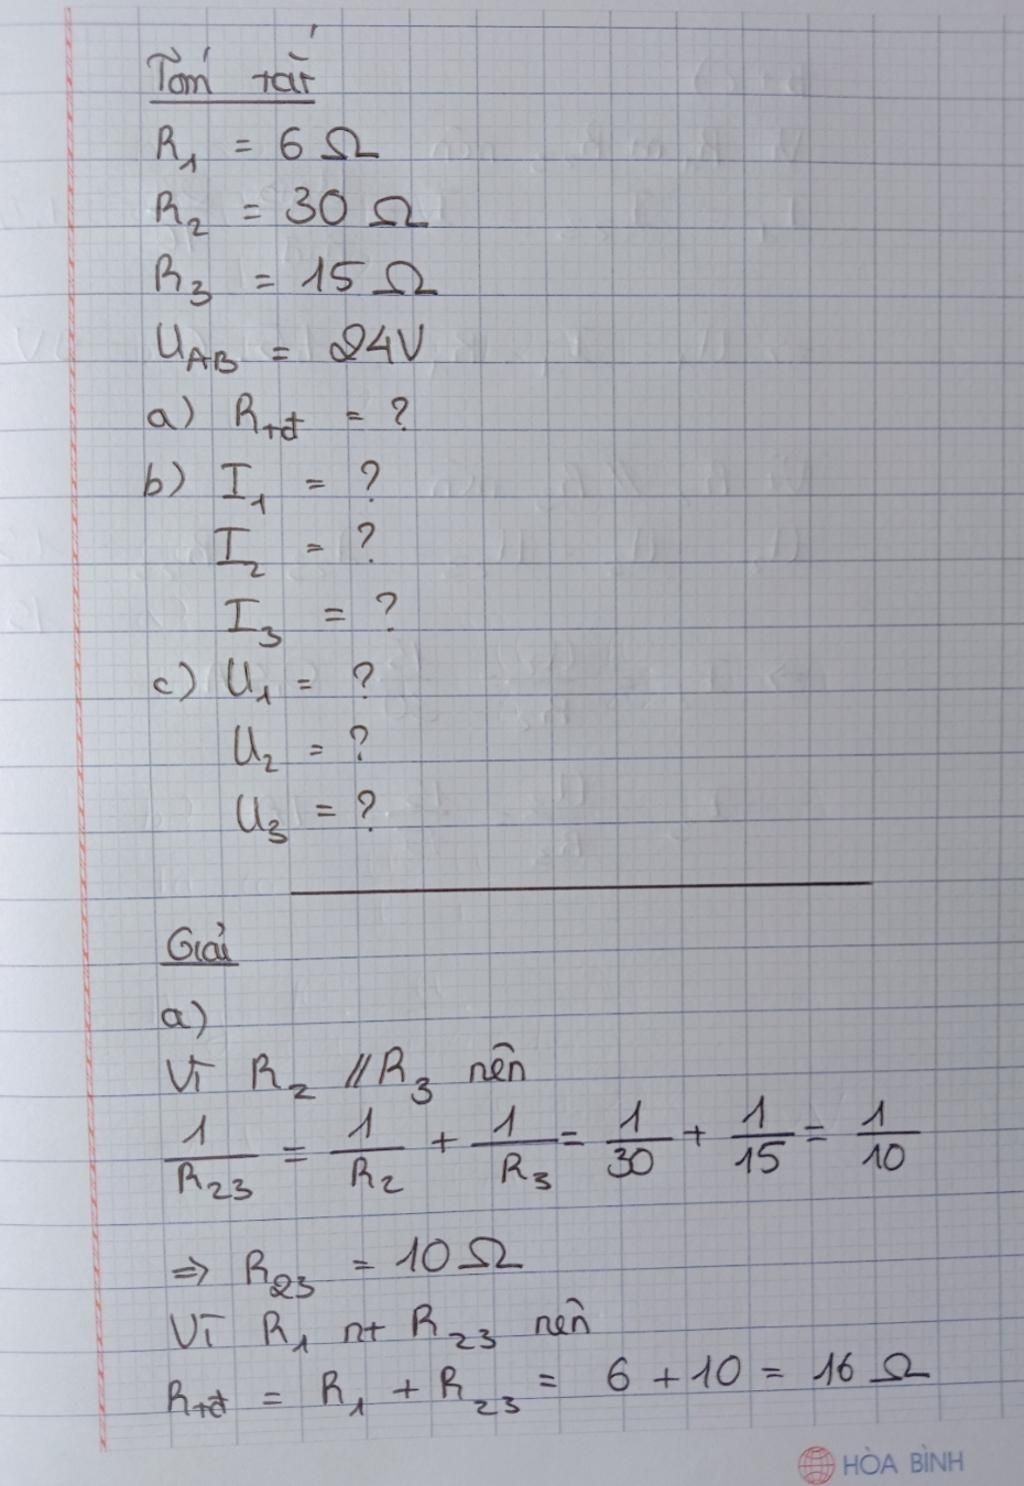 Tóm tắt
R₁ = 6 Ω
R₂ = 30 Ω
R₃ = 15 Ω
U_AB = 24V
a) R_tđ = ?
b) I₁ = ?
I₂ = ?
I₃ = ?
c) U₁ = ?
U₂ = ?
U₃ = ?
Giải
a)
Vì R₂ // R₃ nên
1/R₂₃ = 1/R₂ + 1/R₃ = 1/30 + 1/15 = 1/10
⇒ R₂₃ = 10 Ω
Vì R₁ nt R₂₃ nên
R_tđ = R₁ + R₂₃ = 6 + 10 = 16 Ω
HÒA BÌNH